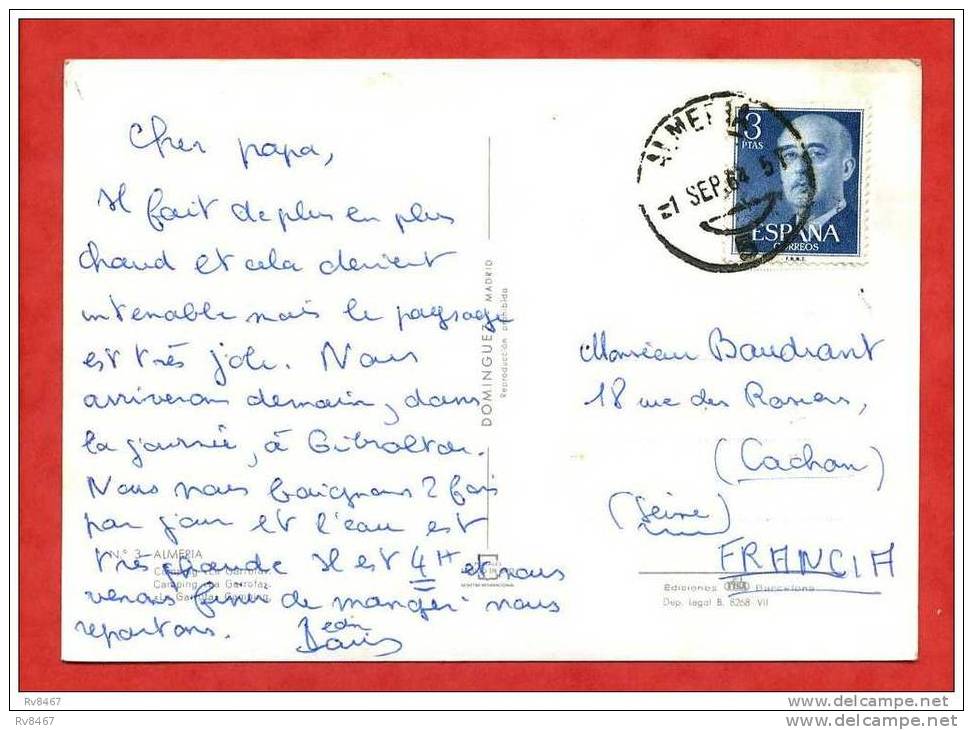 Cher papa,
Il fait de plus en plus
chaud et cela devient
intenable mais le paysage
est très joli. Nous
arriverons demain, dans
la journée, à Gibraltar.
Nous nous baignons 2 fois
par jour et l'eau est
très chaude Il est 4H et nous
venons finir de manger nous
repartons.
N.º 3 - ALMERIA
Camping «La Garrofa».
Camping «La Garrofa».
«La Garrofa» Camping.
DOMINGUEZ - MADRID
Reproducción prohibida
ALMERIA
1 SEP. 64
3
PTAS
ESPAÑA
CORREOS
F.N.M.T.
Monsieur Baudrant
18 rue des Rosiers,
(Cachan)
(Seine)
FRANCIA
Ediciones Barcelona
Dep. legal B. 8268 - VII
Rv8467
Rv8467
www.delcampe.net